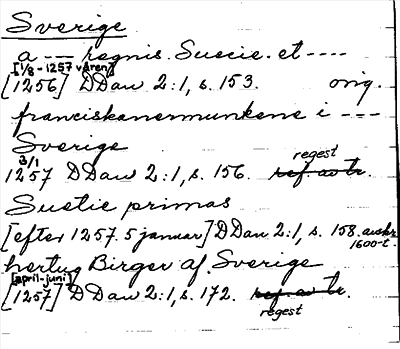 Sverige
a --- regnis. Suecie. et ----
[1/8 - 1257 våren]
[1256] DDan 2:1, s. 153. orig.
franciskanermunkene i ---
Sverige
3/1 regest
1257 DDan 2:1, s. 156. ref. av tr.
Suetie primas
[efter 1257. 5 januar] DDan 2:1, s. 158. avskr.
1600-t.
hertug Birger af Sverige
[april-juni]
[1257] DDan 2:1, s. 172. ref. av tr.
regest